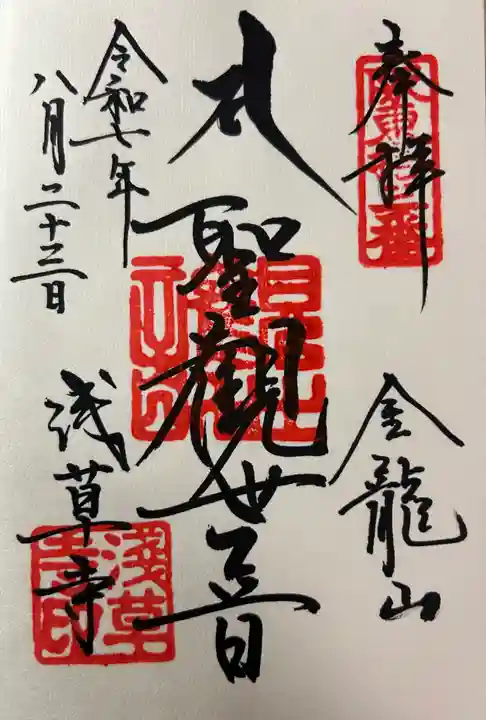 奉拝
金龍山
聖觀世音
令和七年
八月二十三日
浅草寺
淺草
寺印